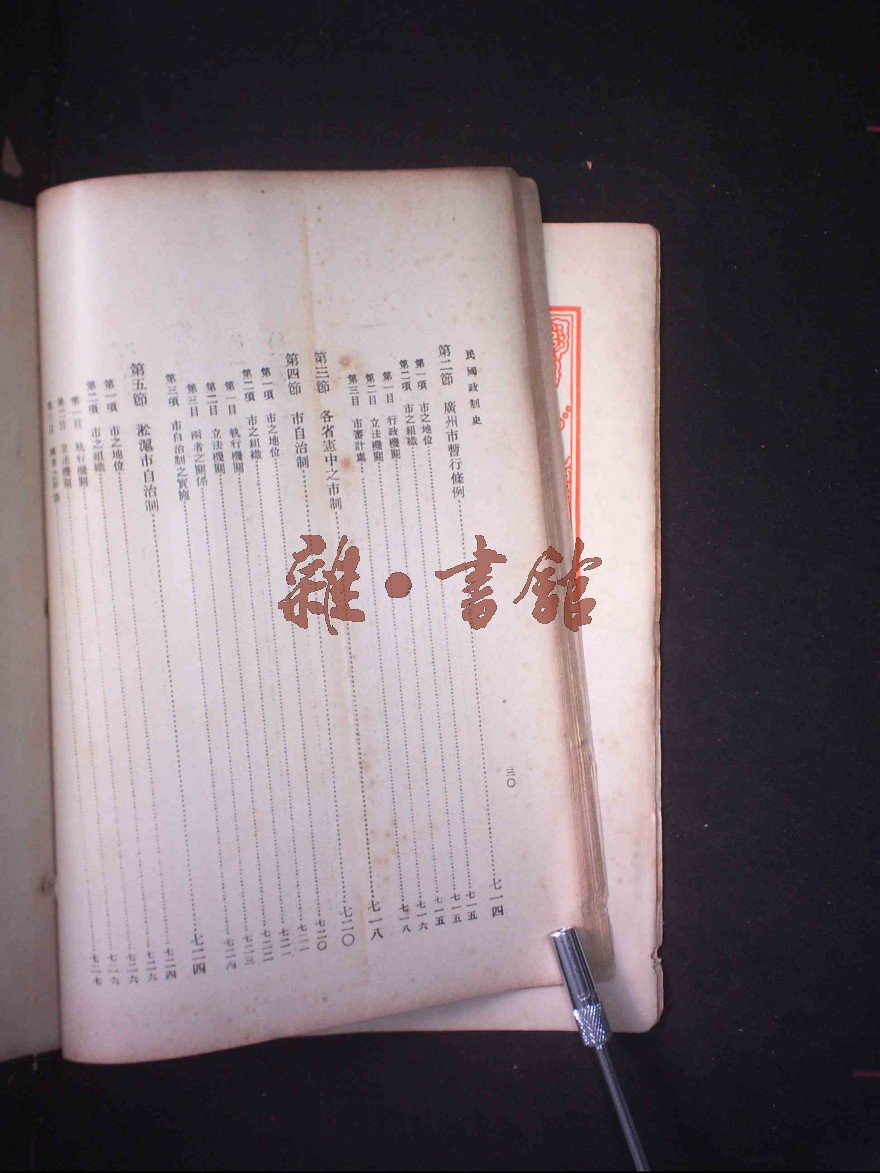 民國政制史
三〇
第二節 廣州市暫行條例……七一四
第一項 市之地位……七一五
第二項 市之組織……七一五
第一目 行政機關……七一五
第二目 立法機關……七一六
第三目 市審計處……七一八
第三節 各省憲中之市制……七一八
第四節 市自治制……七二〇
第一項 市之地位……七二〇
第二項 市之組織……七二一
第一目 執行機關……七二一
第二目 立法機關……七二二
第三目 兩者之關係……七二三
第三項 市自治制之實施……七二四
第五節 淞滬市自治制……七二四
第一項 市之地位……七二四
第二項 市之組織……七二六
第一目 執行機關……七二六
第二目 立法機關……七二六
第三目……七二七
雜·書館